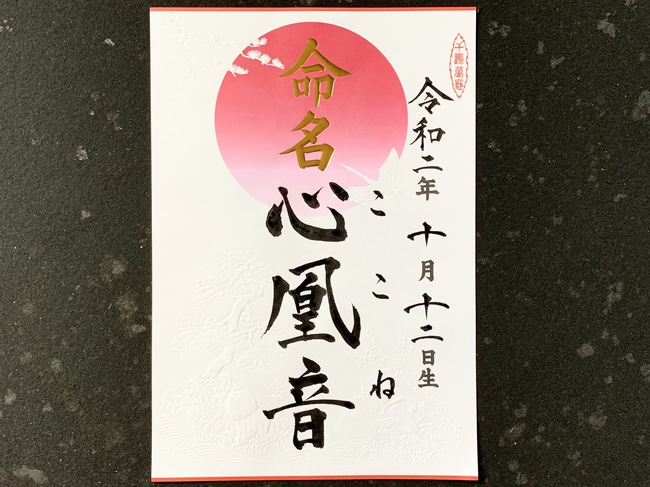 令和二年 十月十二日生
命名
心凰音
ここね